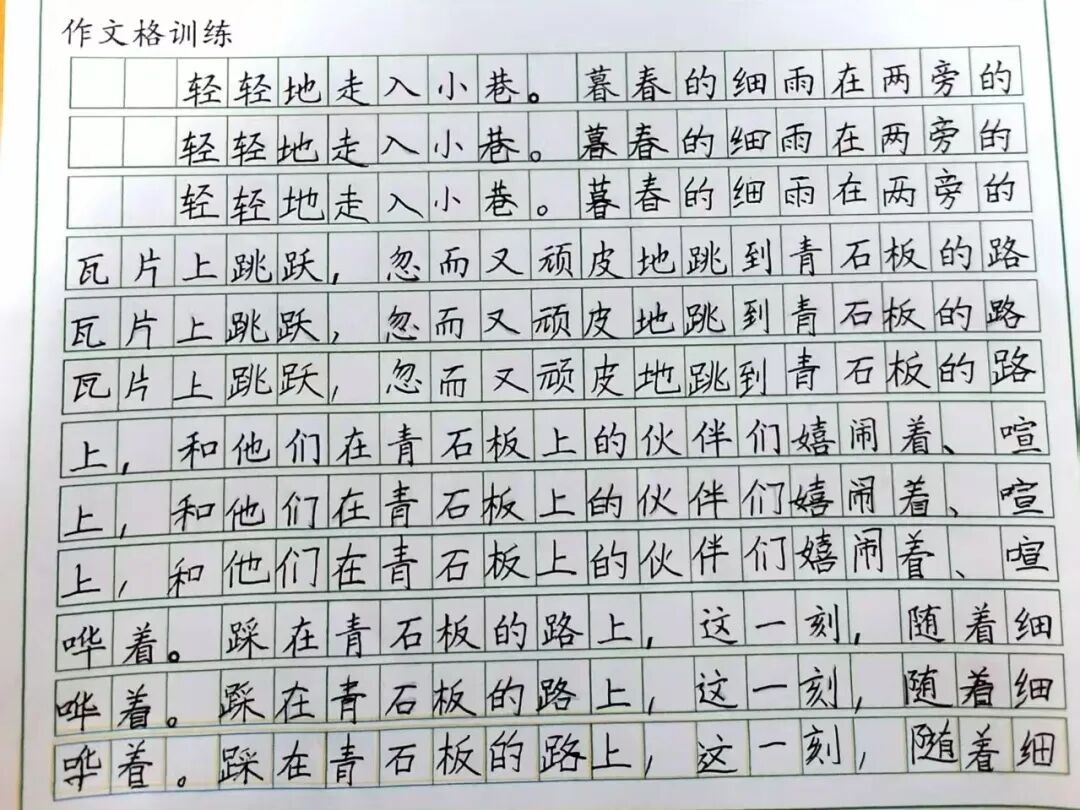 作文格训练
轻轻地走入小巷。暮春的细雨在两旁的
轻轻地走入小巷。暮春的细雨在两旁的
轻轻地走入小巷。暮春的细雨在两旁的
瓦片上跳跃，忽而又顽皮地跳到青石板的路
瓦片上跳跃，忽而又顽皮地跳到青石板的路
瓦片上跳跃，忽而又顽皮地跳到青石板的路
上，和他们在青石板上的伙伴们嬉闹着、喧
上，和他们在青石板上的伙伴们嬉闹着、喧
上，和他们在青石板上的伙伴们嬉闹着、喧
哗着。踩在青石板的路上，这一刻，随着细
哗着。踩在青石板的路上，这一刻，随着细
哗着。踩在青石板的路上，这一刻，随着细